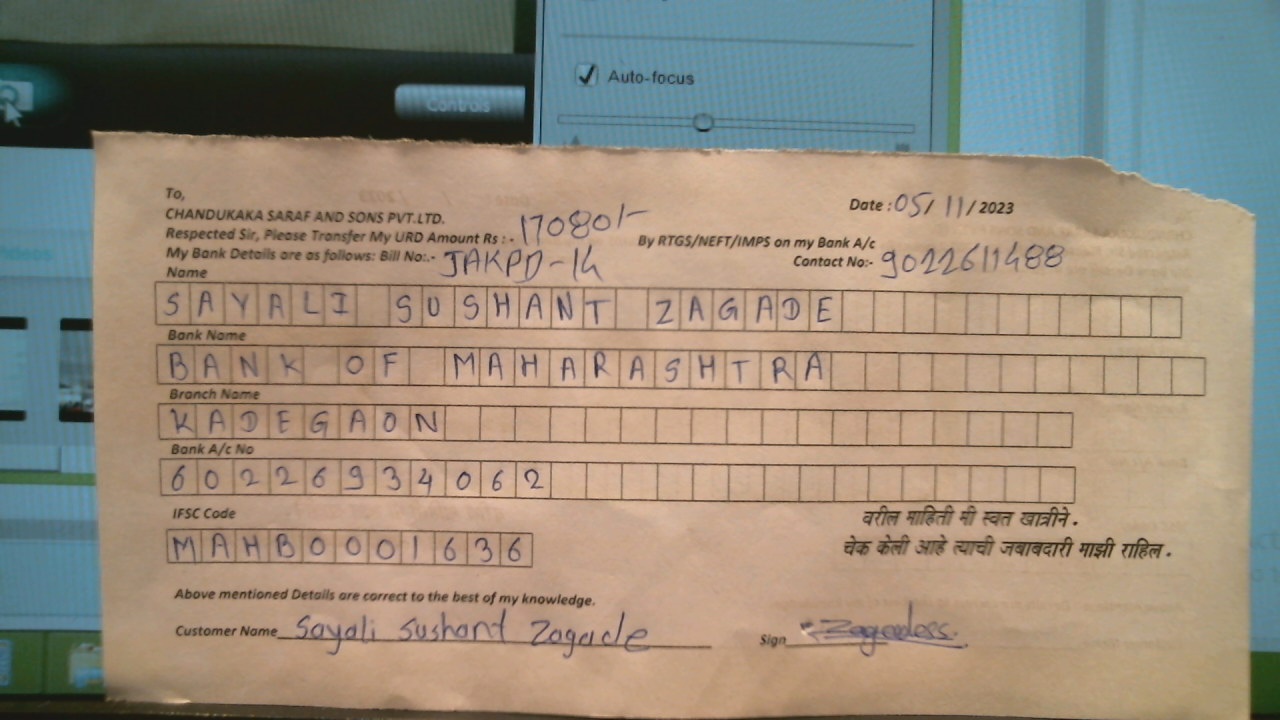 Auto-focus
Controls
To,
CHANDUKAKA SARAF AND SONS PVT.LTD.
Date : 05/ 11/ 2023
Respected Sir, Please Transfer My URD Amount Rs : - 17080/- By RTGS/NEFT/IMPS on my Bank A/c
My Bank Details are as follows: Bill No:.- JAKPD-14 Contact No:- 9022611488
Name
SAYALI SUSHANT ZAGADE
Bank Name
BANK OF MAHARASHTRA
Branch Name
KADEGAON
Bank A/c No
60226934062
IFSC Code
MAHB0001636
वरील माहिती मी स्वत खात्रीने .
चेक केली आहे त्याची जबाबदारी माझी राहिल .
Above mentioned Details are correct to the best of my knowledge.
Customer Name Sayali Sushant Zagade Sign